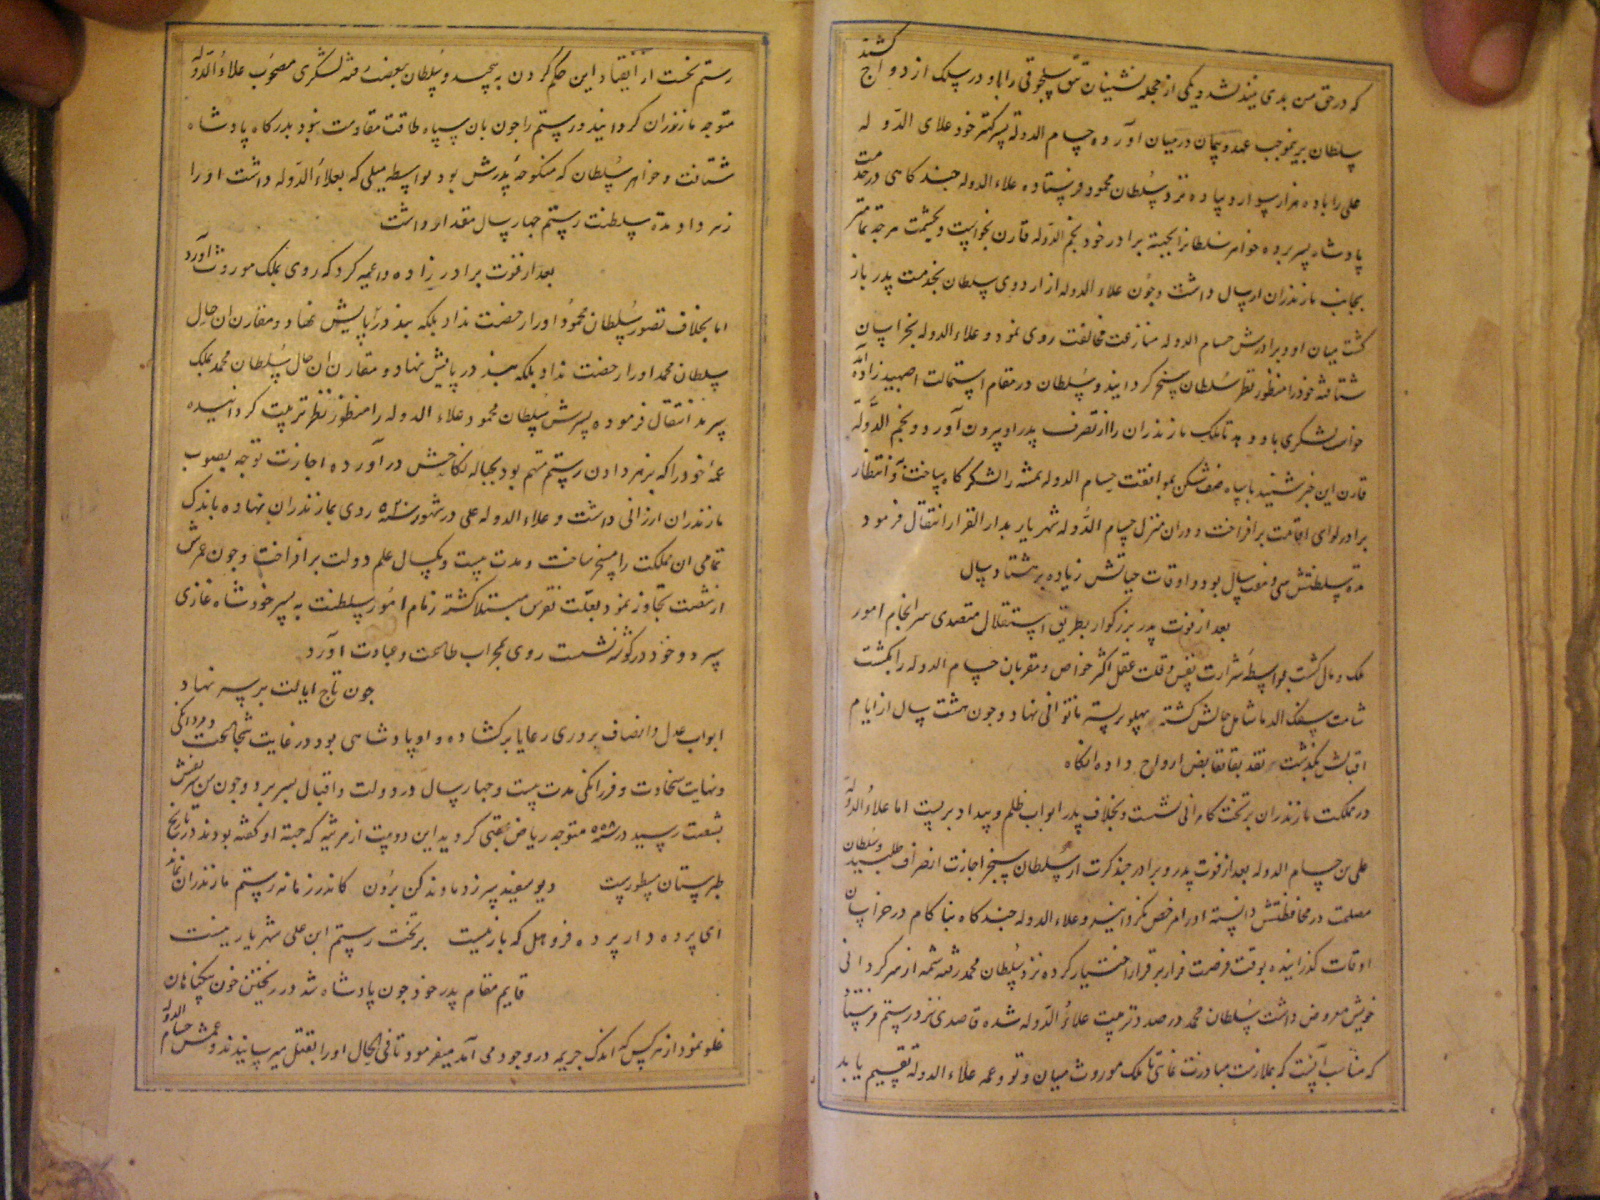 که در حق من بدی نیندیشد و یکی از حجله نشینان تتق سلجوقی را با او در سلک ازدواج کشند
سلطان بر بموجب عهد و پیمان در میان آورده حسام الدوله پسر کهتر خود علاء الدوله
علی را با ده هزار سوار و پیاده نزد سلطان محمود فرستاده علاء الدوله چند گاهی در خدمت
پادشاه بسر برده خواهر سلطان را بجهة برادر خود نجم الدوله قارن بخواست و بحشمت هرچه تمامتر
بجانب مازندران ارسال داشت و چون علاء الدوله از اردوی سلطان بخدمت پدر باز
گشت میان او و برادرش حسام الدوله منازعت مخالفت روی نمود و علاء الدوله بخراسان
شتافته خود را منظور نظر سلطان سنجر گردانید و سلطان در مقام استمالت اصبهبد زاده آمده
خواست لشکری باو دهد تا ملک مازندران را از تصرف پدر او بیرون آورد و نجم الدوله
قارن این خبر شنید با سپاه صف شکن بموافقت حسام الدوله بمشه را لشکرگاه ساخت و انتظار
برادر لوای اقامت برافراخت و در ان منزل حسام الدوله شهریار بدار القرار انتقال فرمود
مدة سلطنتش سی و هفت سال بود و اوقات حیاتش زیاده بر هشتاد سال
بعد از فوت پدر بزرگوار بطریق استقلال متصدی سرانجام امور
ملک و مال گشت بواسطه شرارت نفس و قلت عقل اکثر خواص و مقربان حسام الدوله را بکشت
شامت سفک الدما شامل حالش گشته پهلو بر بستر ناتوانی نهاد و چون هشت سال از ایام
اقبالش بگذشت نقد بقا بقابض ارواح داده انگاه
در مملکت مازندران بر تخت کامرانی نشست و بخلاف پدر ابواب ظلم و بیداد بر بست اما علاء الدوله
علی بن حسام الدوله بعد از فوت پدر و برادر چند کرت از سلطان سنجر اجازت انصراف طلبید و سلطان
مصلحت در محافظتش دانسته او را مرخص نگردانید و علاء الدوله چند گاه بناکام در خراسان
اوقات گذرانیده بوقت فرصت فرار بر قرار اختیار کرده نزد سلطان محمد رفته شمه از سرگردانی
خویش معروض داشت سلطان محمد در صدد تربیت علاء الدوله شده قاصدی نزد رستم فرستاد
که مناسب آنست که بملازمت مبادرت نمائی تا ملک موروث میان تو و عمه علاء الدوله تقسیم یابد
رستم نخست از انقیاد این حکم گردن به پیچید و سلطان بعضت رفته لشکری مصحوب علاء الدوله
متوجه مازندران گردانید و رستم را چون بان سپاه طاقت مقاومت نبود بدرگاه پادشاه
شتافت و خواهر سلطان که منکوحه پدرش بود بواسطه میلی که بعلاء الدوله داشت او را
زهر داد و مدة سلطنت رستم چهار سال مقدار داشت
بعد از فوت برادر زاده داعیه کرد که روی بملک موروث آورد
اما بخلاف تصور سلطان محمود او را رخصت نداد بلکه بند در پایش نهاد و مقارن ان حال
سلطان محمد او را رخصت نداد بلکه بند در پایش نهاد و مقارن ان حال سلطان محمد بملک
سرمد انتقال فرموده پسرش سلطان محمود علاء الدوله را منظور نظر تربیت گردانیده
عمه خود را که بزهر دادن رستم متهم بود بحباله نکاحش در آورده اجازت توجه بصوب
مازندران ارزانی داشت و علاء الدوله علی در شهور سنه روی بمازندران نهاده باندک
تمامی ان مملکت را مسخر ساخت و مدت بیست و یکسال علم دولت برافراخت و چون عمرش
از شصت تجاوز نمود بعلت نقرس مبتلا گشته زمام امور سلطنت به پسر خود شاه غازی
سپرد و خود در گوشه نشست روی بمحراب طاعت و عبادت آورد
چون تاج ایالت بر سر نهاد
ابواب عدل و انصاف بر روی رعایا برگشاده و او پادشاهی بود در غایت شجاعت و مردانگی
و نهایت سخاوت و فرزانگی مدت بیست و چهار سال در دولت و اقبال بسر برد و چون سن شریفش
بشصت رسید در سنه ۵۵۸ متوجه ریاض عقبی گردید این دو بیت از مرثیه که جهة او گفته بودند در تاریخ
طبرستان مسطورست دیو سفید سر ز دماوند کن برون کاندر زمانه رستم مازندران نماند
ای پرده دار پرده فروهل که بار نیست بر تخت رستم ابن علی شهریار نیست
قایم مقام پدر خود چون پادشاه شد در ریختن خون بیگناهان
غلو نمود از هر کس که اندک جریمه در وجود می آمد میفرمود تا فی الحال او را بقتل میرسانیدند و عمش حسام الدوله